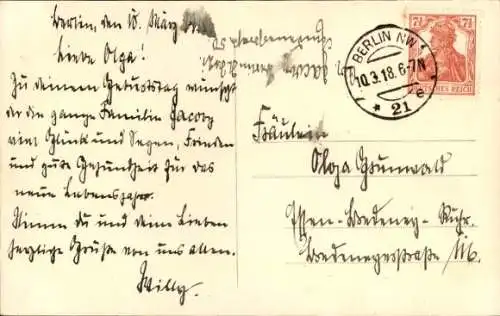 Berlin, den 10. März
Liebe Olga!
Zu deinem Geburtstag wünscht
dir die ganze Familie Jacoby
viel Glück und Segen, Frieden
und gute Gesundheit für das
neue Lebensjahr.
Nimm du und deine Lieben
herzliche Grüße von uns allen.
Willy.
BERLIN NW
10.3.18. 6-7N
* 21 e
7½ 7½
DEUTSCHES REICH
Fräulein
Olga Grunwald
Essen-Bredeney-Ruhr.
Bredeneyerstraße